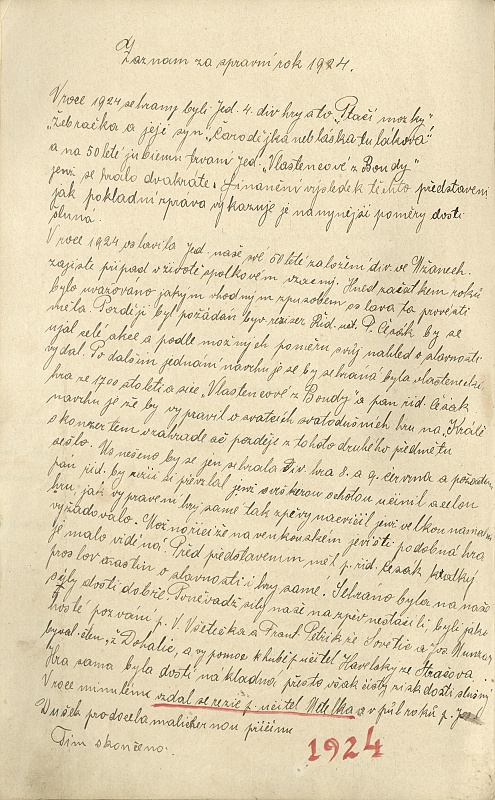 Zaznam za spravní rok 1924.
V roce 1924 sehrany byli Jed. 4. div hry a to „Ptačí mozky"
„Žebračka a její syn", „Čarodějka neb láska tuláková"
a na 50 letí jubileum trvaní Jed. „Vlastencové z Bondy"
jenž se hrálo dvakráte. Finanční výsledek těchto představení
jak pokladní zprava vykazuje je na nynější poměry dosti
slušna.
V roce 1924 oslavila Jed. naše své 50 leté založení div. ve Mžanech.
zajiste připad v životě spolkovém vzacny. Hned začátkem roků
bylo uvažováno jakým vhodným zpusobem oslava ta provésti
měla. Později byl požádán byv. režiser Řid. uč. P. Česák by se
ujal celé akce a podle možných poměru svůj nahled o slavnosti
vydal. Po dalším jednání navrhuje se by sehráná byla vlastenecká
hra ze 1700 století a sice „Vlastencové z Bondy" a pan řid. Česák
navrhuje že by vypravil o svatcích svatodušních hru na „Králé"
s konzertem v zahradě což pozdeje z tohoto druhého předmětu
sešlo. Usnešeno by se jen sehrala div. hra 8. a 9. června a požádán
pan řid. by režii si převzal jenž s veškerou ochotou učinil a celou
hru jak vypravení hry samé tak zpěvy nacvičil jenž velkou namahu
vyžadovalo. Možno říci že na venkovském jevišti podobná hra
je málo viděná. Před představením měl p. řid. Česák krátký
proslov o častin o slavnosti i hry samé. Sehráno byla na naše
síly dosti dobře. Poněvadž síly naše na zpěv nestačili, byli jako
hosté pozváni p. V. Všetečka a Frant. Petřík ze Sovetic a Jos Munzar
byval. člen „z Dohalic, a vypomoc k hudbě p. učitel Havelsky ze Stračova.
Hra sama byla dosti nákladna přesto však čistý zisk dosti slušný.
V roce minulém vzdal se režie p. učitel Mitelka a v půl roků p. Jos
Dušek pro docela malichernou příčinu
Tim skončeno.
1924